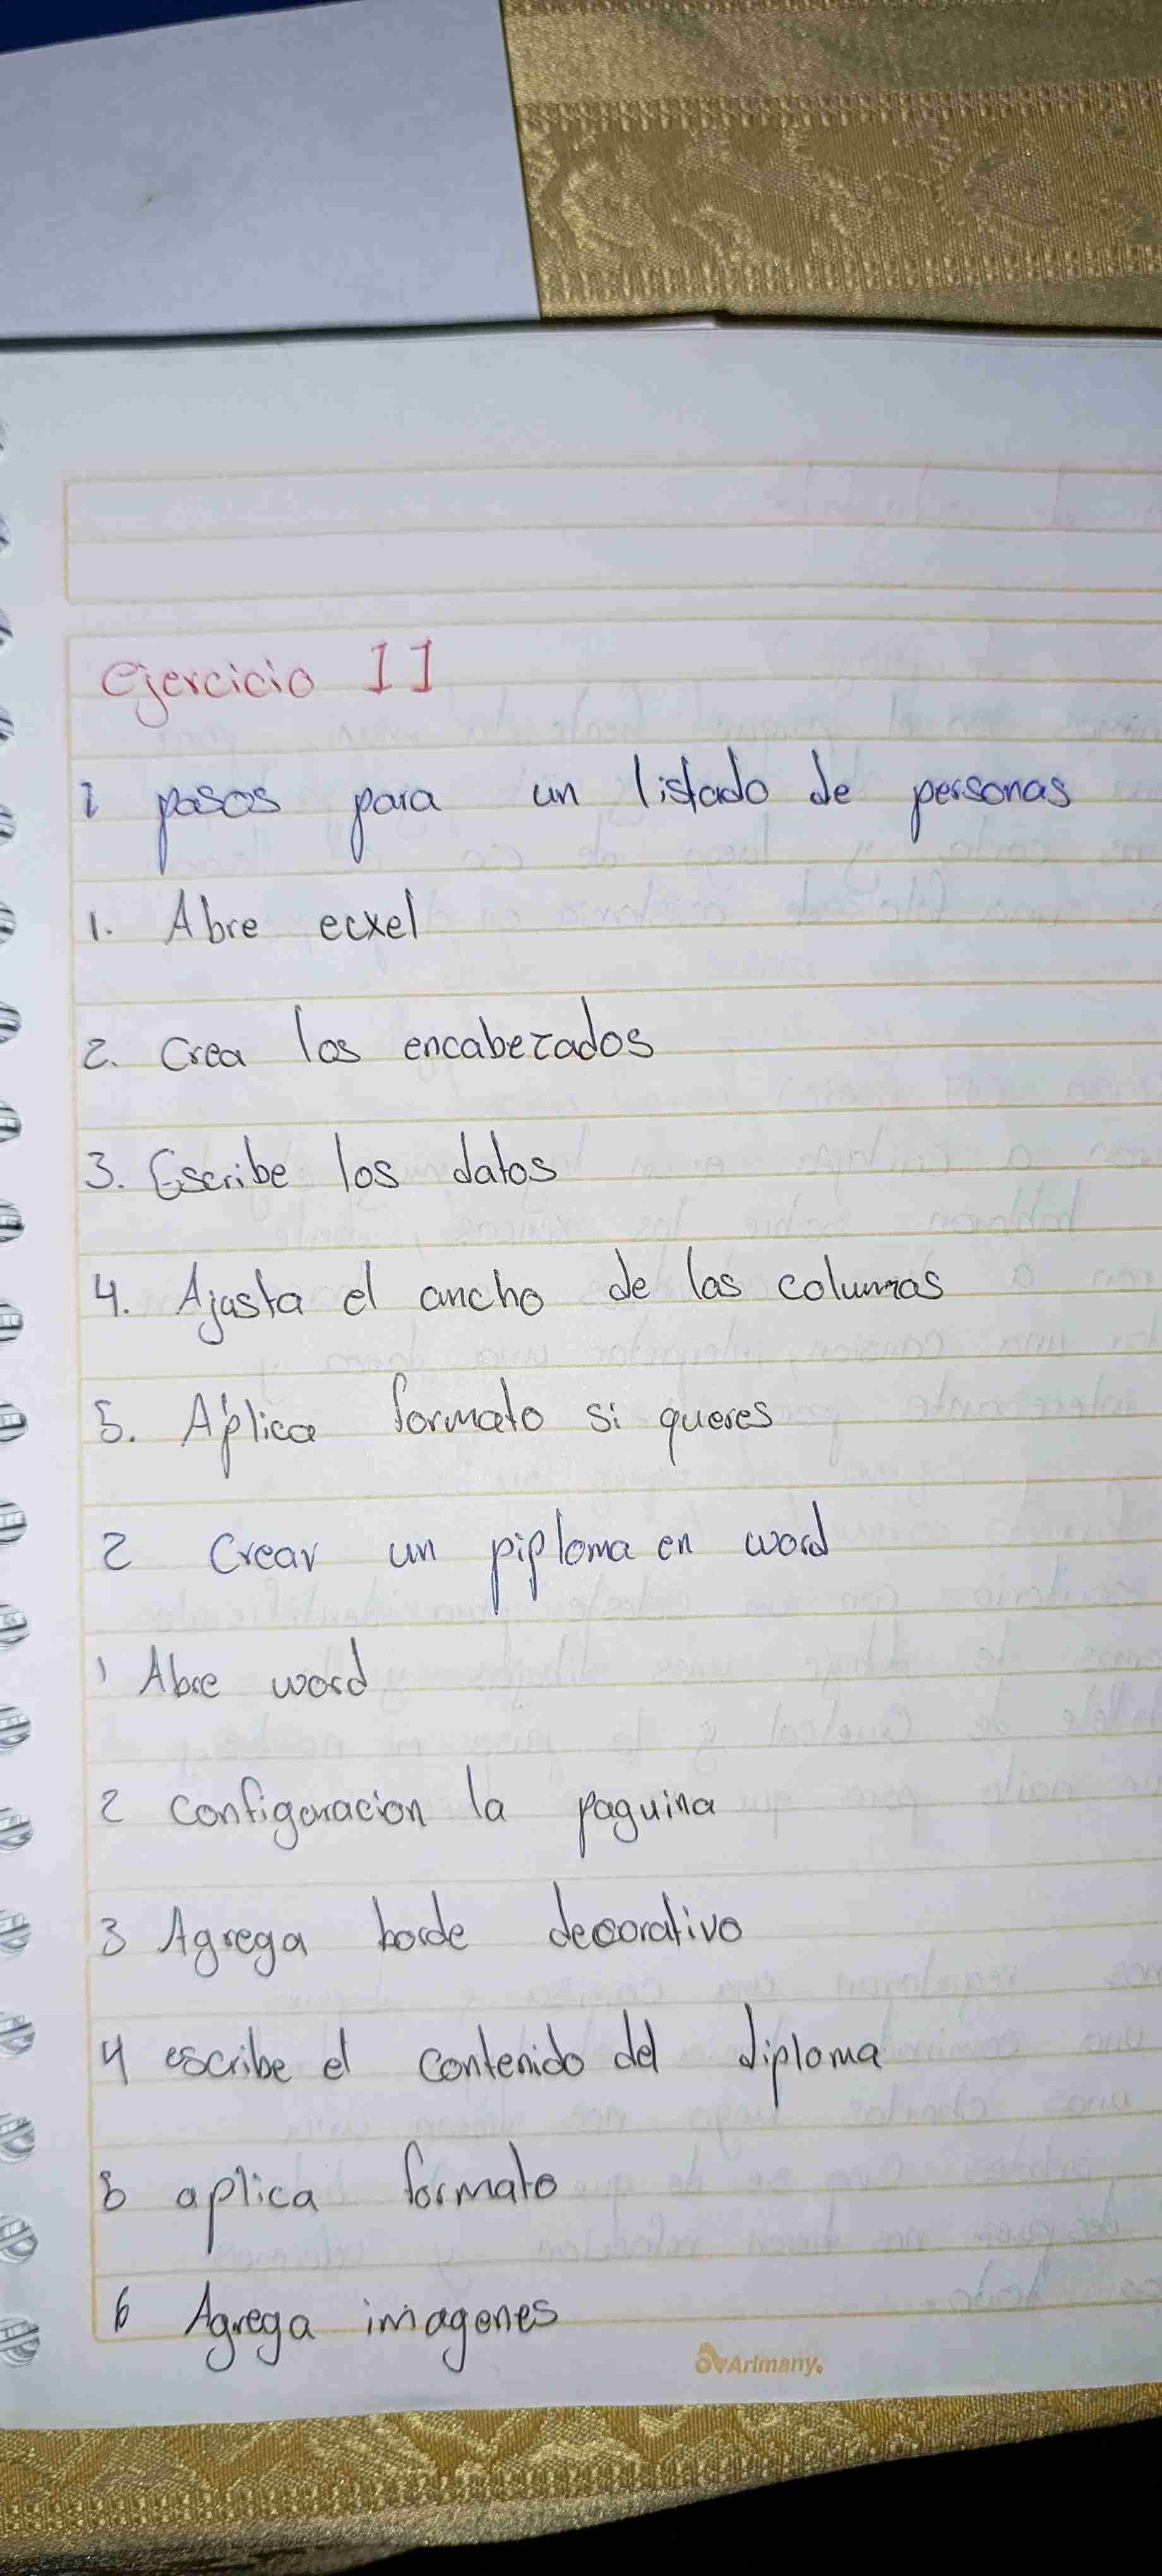 ejercicio 11
1 pasos para un listado de personas
1. Abre ecxel
2. Crea los encabezados
3. Escribe los datos
4. Ajusta el ancho de las columnas
5. Aplica formato si queres
2 Crear un piploma en word
1 Abre word
2 configuracion la paguina
3 Agrega borde decorativo
4 escribe el contenido del diploma
5 aplica formato
6 Agrega imagenes
Arimany